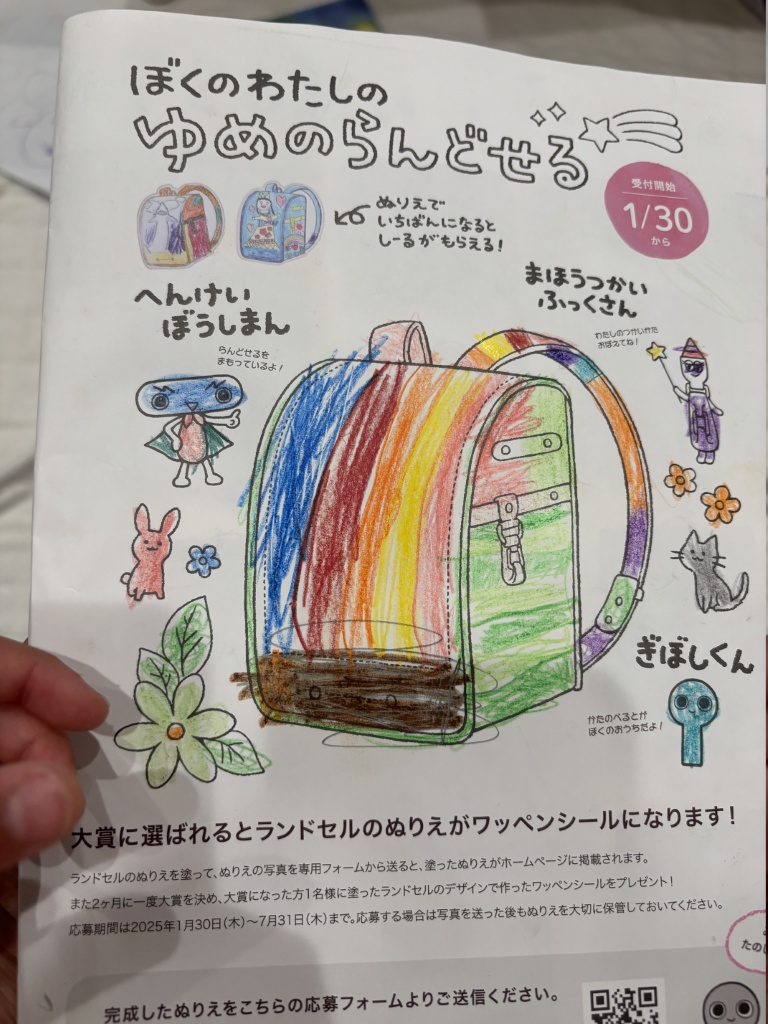 ぼくのわたしの
ゆめのらんどせる
受付開始
1/30
から
ぬりえで
いちばんになると
しーるがもらえる!
へんけい
ぼうしまん
らんどせるを
まもっているよ!
まほうつかい
ふっくさん
わたしのつかいかた
おぼえてね!
ぎぼしくん
かたのべるとが
ぼくのおうちだよ!
大賞に選ばれるとランドセルのぬりえがワッペンシールになります!
ランドセルのぬりえを塗って、ぬりえの写真を専用フォームから送ると、塗ったぬりえがホームページに掲載されます。
また2ヶ月に一度大賞を決め、大賞になった方1名様に塗ったランドセルのデザインで作ったワッペンシールをプレゼント!
応募期間は2025年1月30日(木)〜7月31日(木)まで。応募する場合は写真を送った後もぬりえを大切に保管しておいてください。
完成したぬりえをこちらの応募フォームよりご送信ください。